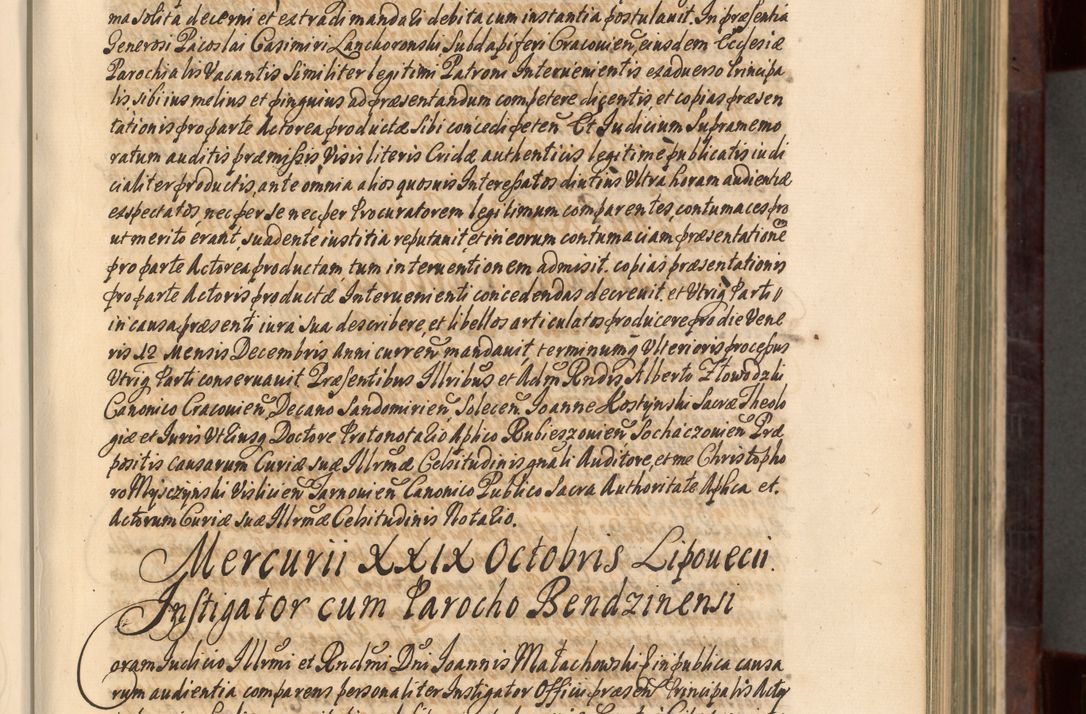 ma solita decerni et extradi mandati debita cum instantia postulauit. In præsentia
Generosi Pacoslai Casimiri Lanchoronski Subdapiferi Cracouien̄ eiusdem Ecclesiæ
Parochialis Vacantis similiter legitimi Patroni Interuenientis ex aduerso Principa
lis, sibi ius melius et pinguius ad præsentandum competere dicentis, et copias præsen
tationis pro parte Actorea productæ Sibi concedi peten̄ Et Iudicium Supramemo
ratum auditis præmissis Visis literis Cridæ authenticis legitime publicatis iudi
cialiter productis, ante omnia alios quosuis Interessatos diutius Vltra horam audientiæ
exspectatos nec per se nec per Procuratorem legitimum comparentes, contumaces pro
ut merito erant, suadente iustitia reputauit, et in eorum contumaciam præsentatione
pro parte Actorea productam tum interuentionem admisit. copias præsentationis
pro parte Actoris productæ Interuenienti concedendas decreuit, et Vtriq Parti
in causa præsenti iura sua describere, et libellos articulatos producere pro die Vene
ris 12 Mensis Decembris Anni curren̄ mandauit terminumq Vlterioris processus
Vtriq Parti conseruauit Præsentibus Illribus et Adm Rndis Alberto Złowodzki
Canonico Cracouien̄ Decano Sandomirien̄, Solecen̄ Ioanne Hostynski Sacræ Theolo
giæ et Iuris Vtiusq Doctore Protonotario Aplico Rubieszouien̄ Sochaczouien̄ Præ
positis causarum Curiæ suæ Illrmæ Celsitudinis gnali Auditore, et me Christopho
ro Mysczynski Vislicien̄ Tarnouien̄ Canonico Publico Sacra Authoritate Aplica et.
Actorum Curiæ suæ Illrmæ Celsitudinis Notario.
Mercurii XXIX Octobris Lipouecii.
Instigator cum Parocho Bendzinensi
Coram Iudicio Illrmi et Rndmi Dni Ioannis Małachowski in publica causa
rum audientia comparens personaliter Instigator Officii præsen̄ Principalis Actor